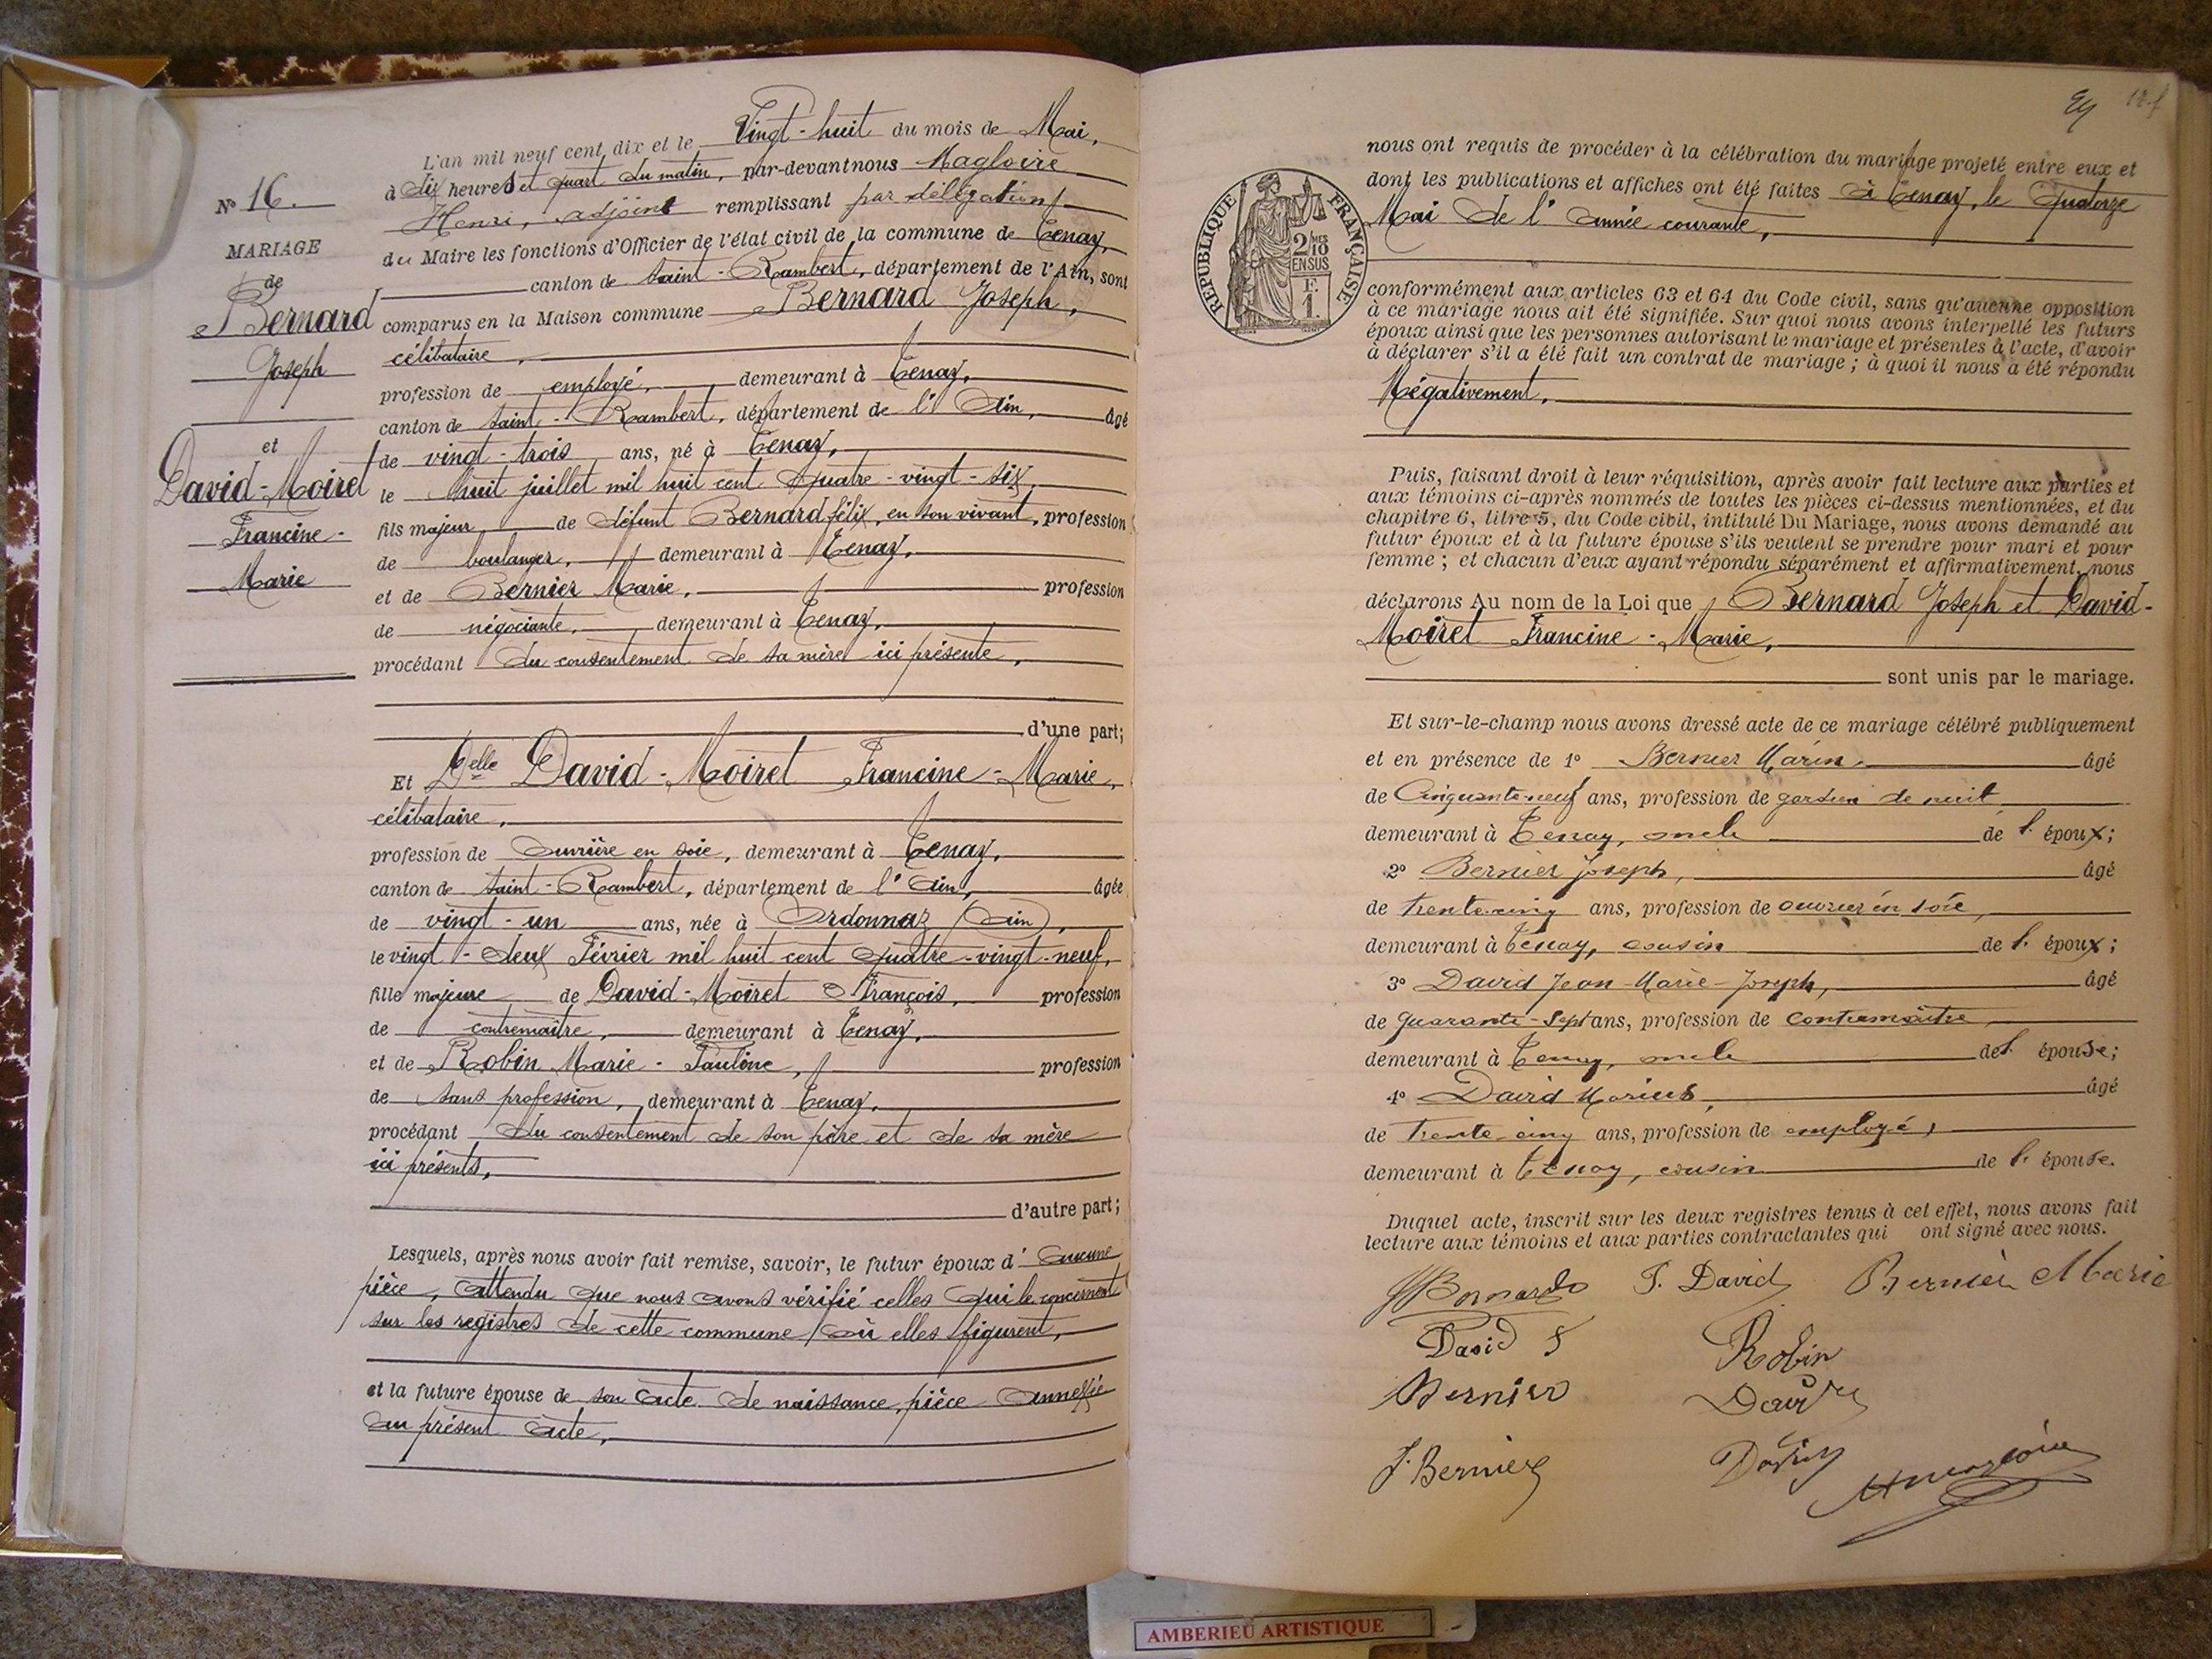 L'an mil neuf cent dix et le Vingt-huit du mois de Mai,
à dix heures et quart du matin, par-devant nous Magloire
Henri, adjoint remplissant par délégation
du Maire les fonctions d'Officier de l'état civil de la commune de Tenay,
canton de Saint-Rambert, département de l'Ain, sont
comparus en la Maison commune Bernard Joseph,
célibataire,
profession de employé, demeurant à Tenay,
canton de Saint-Rambert, département de l'Ain, âgé
de vingt-trois ans, né à Tenay,
le huit juillet mil huit cent quatre-vingt-six,
fils majeur de défunt Bernard félix, en son vivant, profession
de boulanger, demeurant à Tenay,
et de Bernier Marie, profession
de négociante, demeurant à Tenay,
procédant du consentement de sa mère ici présente,
d'une part;
Et Delle David-Moiret Francine-Marie,
célibataire,
profession de Ouvrière en soie, demeurant à Tenay,
canton de Saint-Rambert, département de l'Ain, âgée
de vingt-un ans, née à Ordonnaz (Ain),
le vingt-deux Février mil huit cent quatre-vingt-neuf,
fille majeure de David-Moiret François, profession
de contremaître, demeurant à Tenay,
et de Robin Marie-Pauline, profession
de sans profession, demeurant à Tenay,
procédant du consentement de son père et de sa mère
ici présents,
d'autre part;
Lesquels, après nous avoir fait remise, savoir, le futur époux d'aucune
pièce, attendu que nous avons vérifié celles qui le concernent
sur les registres de cette commune où elles figurent,
et la future épouse de son acte de naissance, pièce annexée
au présent acte,
No 16.
MARIAGE
de
Bernard
Joseph
et
David-Moiret
Francine-
Marie
nous ont requis de procéder à la célébration du mariage projeté entre eux et
dont les publications et affiches ont été faites à Tenay, le quatorze
Mai de l'année courante,
RÉPUBLIQUE FRANÇAISE
2/10MES
EN SUS
F.
1.
conformément aux articles 63 et 64 du Code civil, sans qu'aucune opposition
à ce mariage nous ait été signifiée. Sur quoi nous avons interpellé les futurs
époux ainsi que les personnes autorisant le mariage et présentes à l'acte, d'avoir
à déclarer s'il a été fait un contrat de mariage; à quoi il nous a été répondu
Négativement,
Puis, faisant droit à leur réquisition, après avoir fait lecture aux parties et
aux témoins ci-après nommés de toutes les pièces ci-dessus mentionnées, et du
chapitre 6, titre 5, du Code civil, intitulé Du Mariage, nous avons demandé au
futur époux et à la future épouse s'ils veulent se prendre pour mari et pour
femme; et chacun d'eux ayant répondu séparément et affirmativement, nous
déclarons Au nom de la Loi que Bernard Joseph et David-
Moiret Francine-Marie,
sont unis par le mariage.
Et sur-le-champ nous avons dressé acte de ce mariage célébré publiquement
et en présence de 1° Bernier Marin, âgé
de Cinquante-neuf ans, profession de gardien de nuit
demeurant à Tenay, oncle de l'époux;
2° Bernier Joseph, âgé
de trente-cinq ans, profession de ouvrier en soie,
demeurant à Tenay, cousin de l'époux;
3° David Jean-Marie-Joseph, âgé
de quarante-sept ans, profession de contremaître
demeurant à Tenay, oncle de l'épouse;
4° David Marius, âgé
de trente-cinq ans, profession de employé,
demeurant à Tenay, cousin de l'épouse.
Duquel acte, inscrit sur les deux registres tenus à cet effet, nous avons fait
lecture aux témoins et aux parties contractantes qui ont signé avec nous.
JBernard F. David Bernier Marie
David F Robin
Bernier David
J. Bernier David HMagloire
AMBERIEU ARTISTIQUE